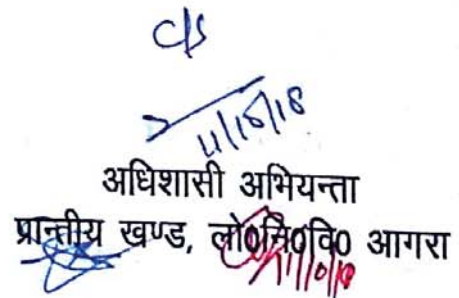 C/S
11/10/18
अधिशासी अभियन्ता
प्रान्तीय खण्ड, लो0नि0वि0 आगरा